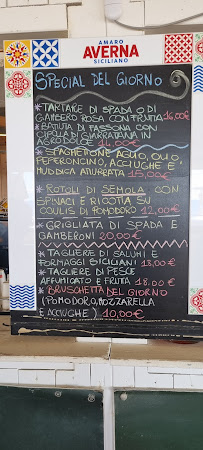 AMARO
AVERNA
SICILIANO
SPECIAL DEL GIORNO
* TARTARE DI SPADA O DI
GAMBERO ROSA CON FRUTTA 16,00€
* BATTUTA DI FASSONA CON
CIPOLLA DI GIARRATANA IN
AGRODOLCE 14,00€
* SPAGHETTONE AGLIO, OLIO
PEPERONCINO, ACCIUGHE E
MUDDICA ATURRATA 15,00€
* ROTOLI DI SEMOLA CON
SPINACI E RICOTTA SU
COULIS DI POMODORO 12,00€
* GRIGLIATA DI SPADA E
GAMBERONI 20,00€
* TAGLIERE DI SALUMI E
FORMAGGI SICILIANI 13,00€
* TAGLIERE DI PESCE
AFFUMICATO E FRUTTA 18,00€
* BRUSCHETTA DEL GIORNO
(POMODORO, MOZZARELLA
E ACCIUGHE) 10,00€